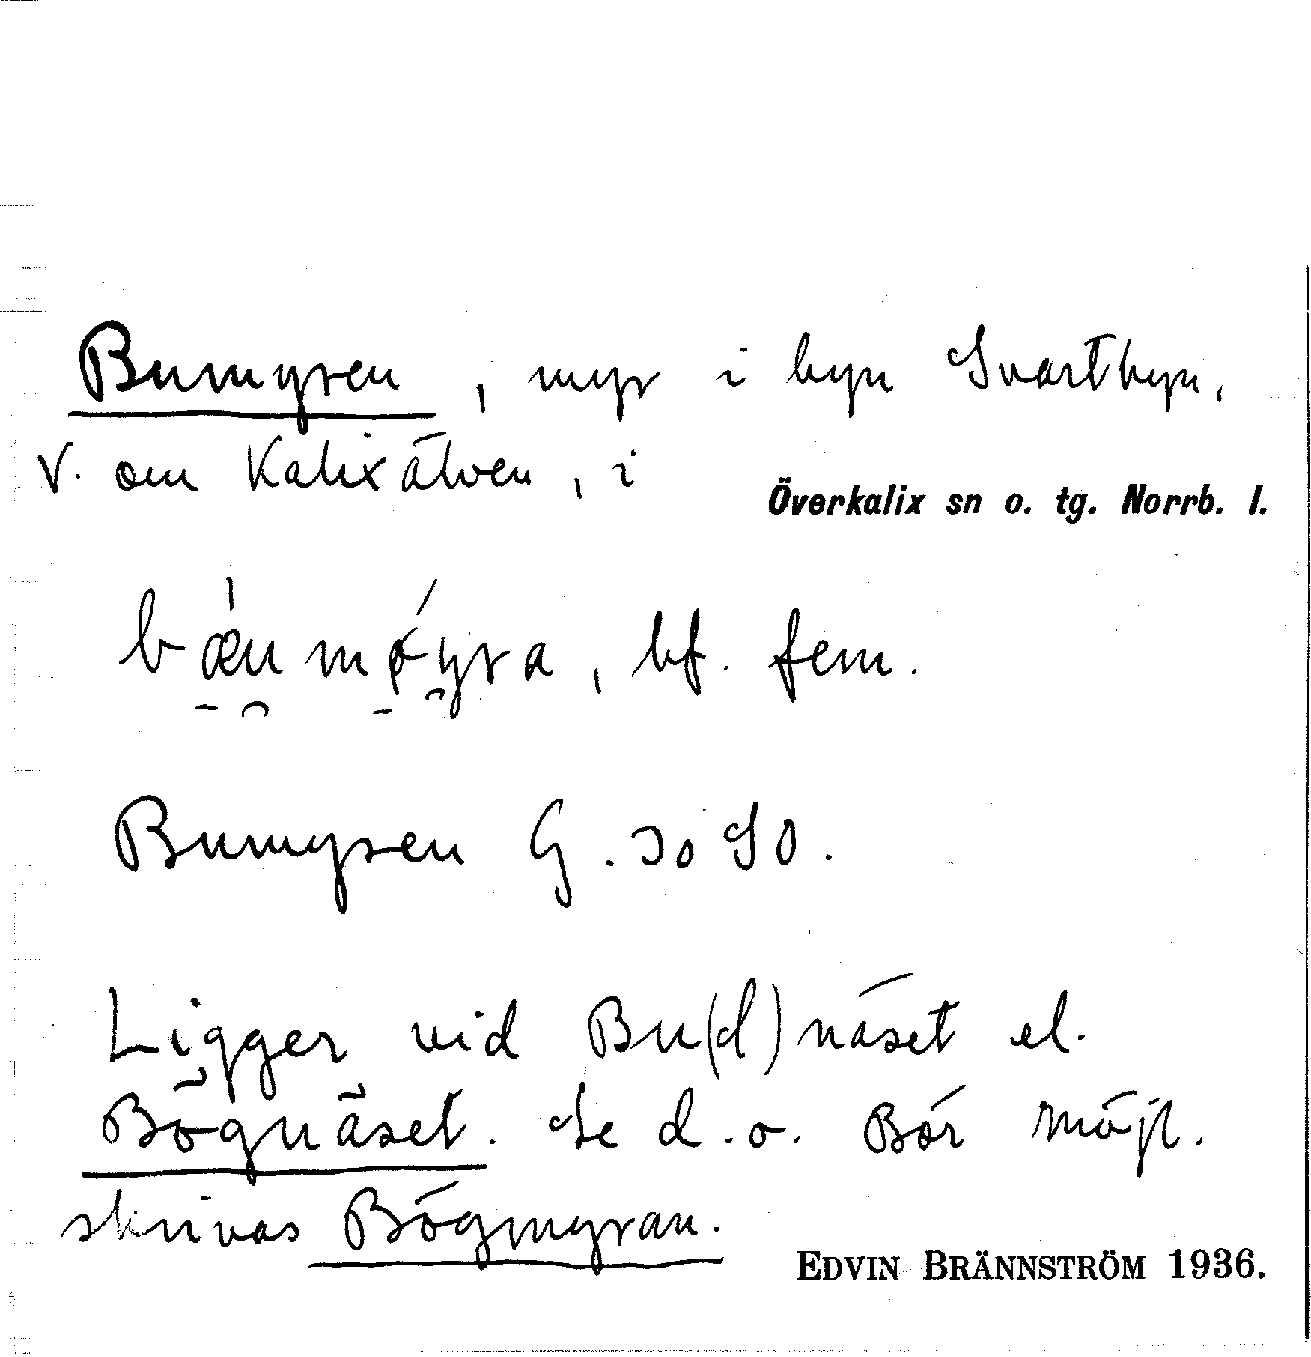 Bumyren, myr i byn Svartbyn,
V. om Kalixälven, i
Överkalix sn o. tg. Norrb. l.
bæ̀umǿyra, bf. fem.
Bumyren G.
Ligger vid Bu(d)näset el.
Bögnäset. Se d.o. Bör möjl.
skrivas Bögmyran.
EDVIN BRÄNNSTRÖM 1936.